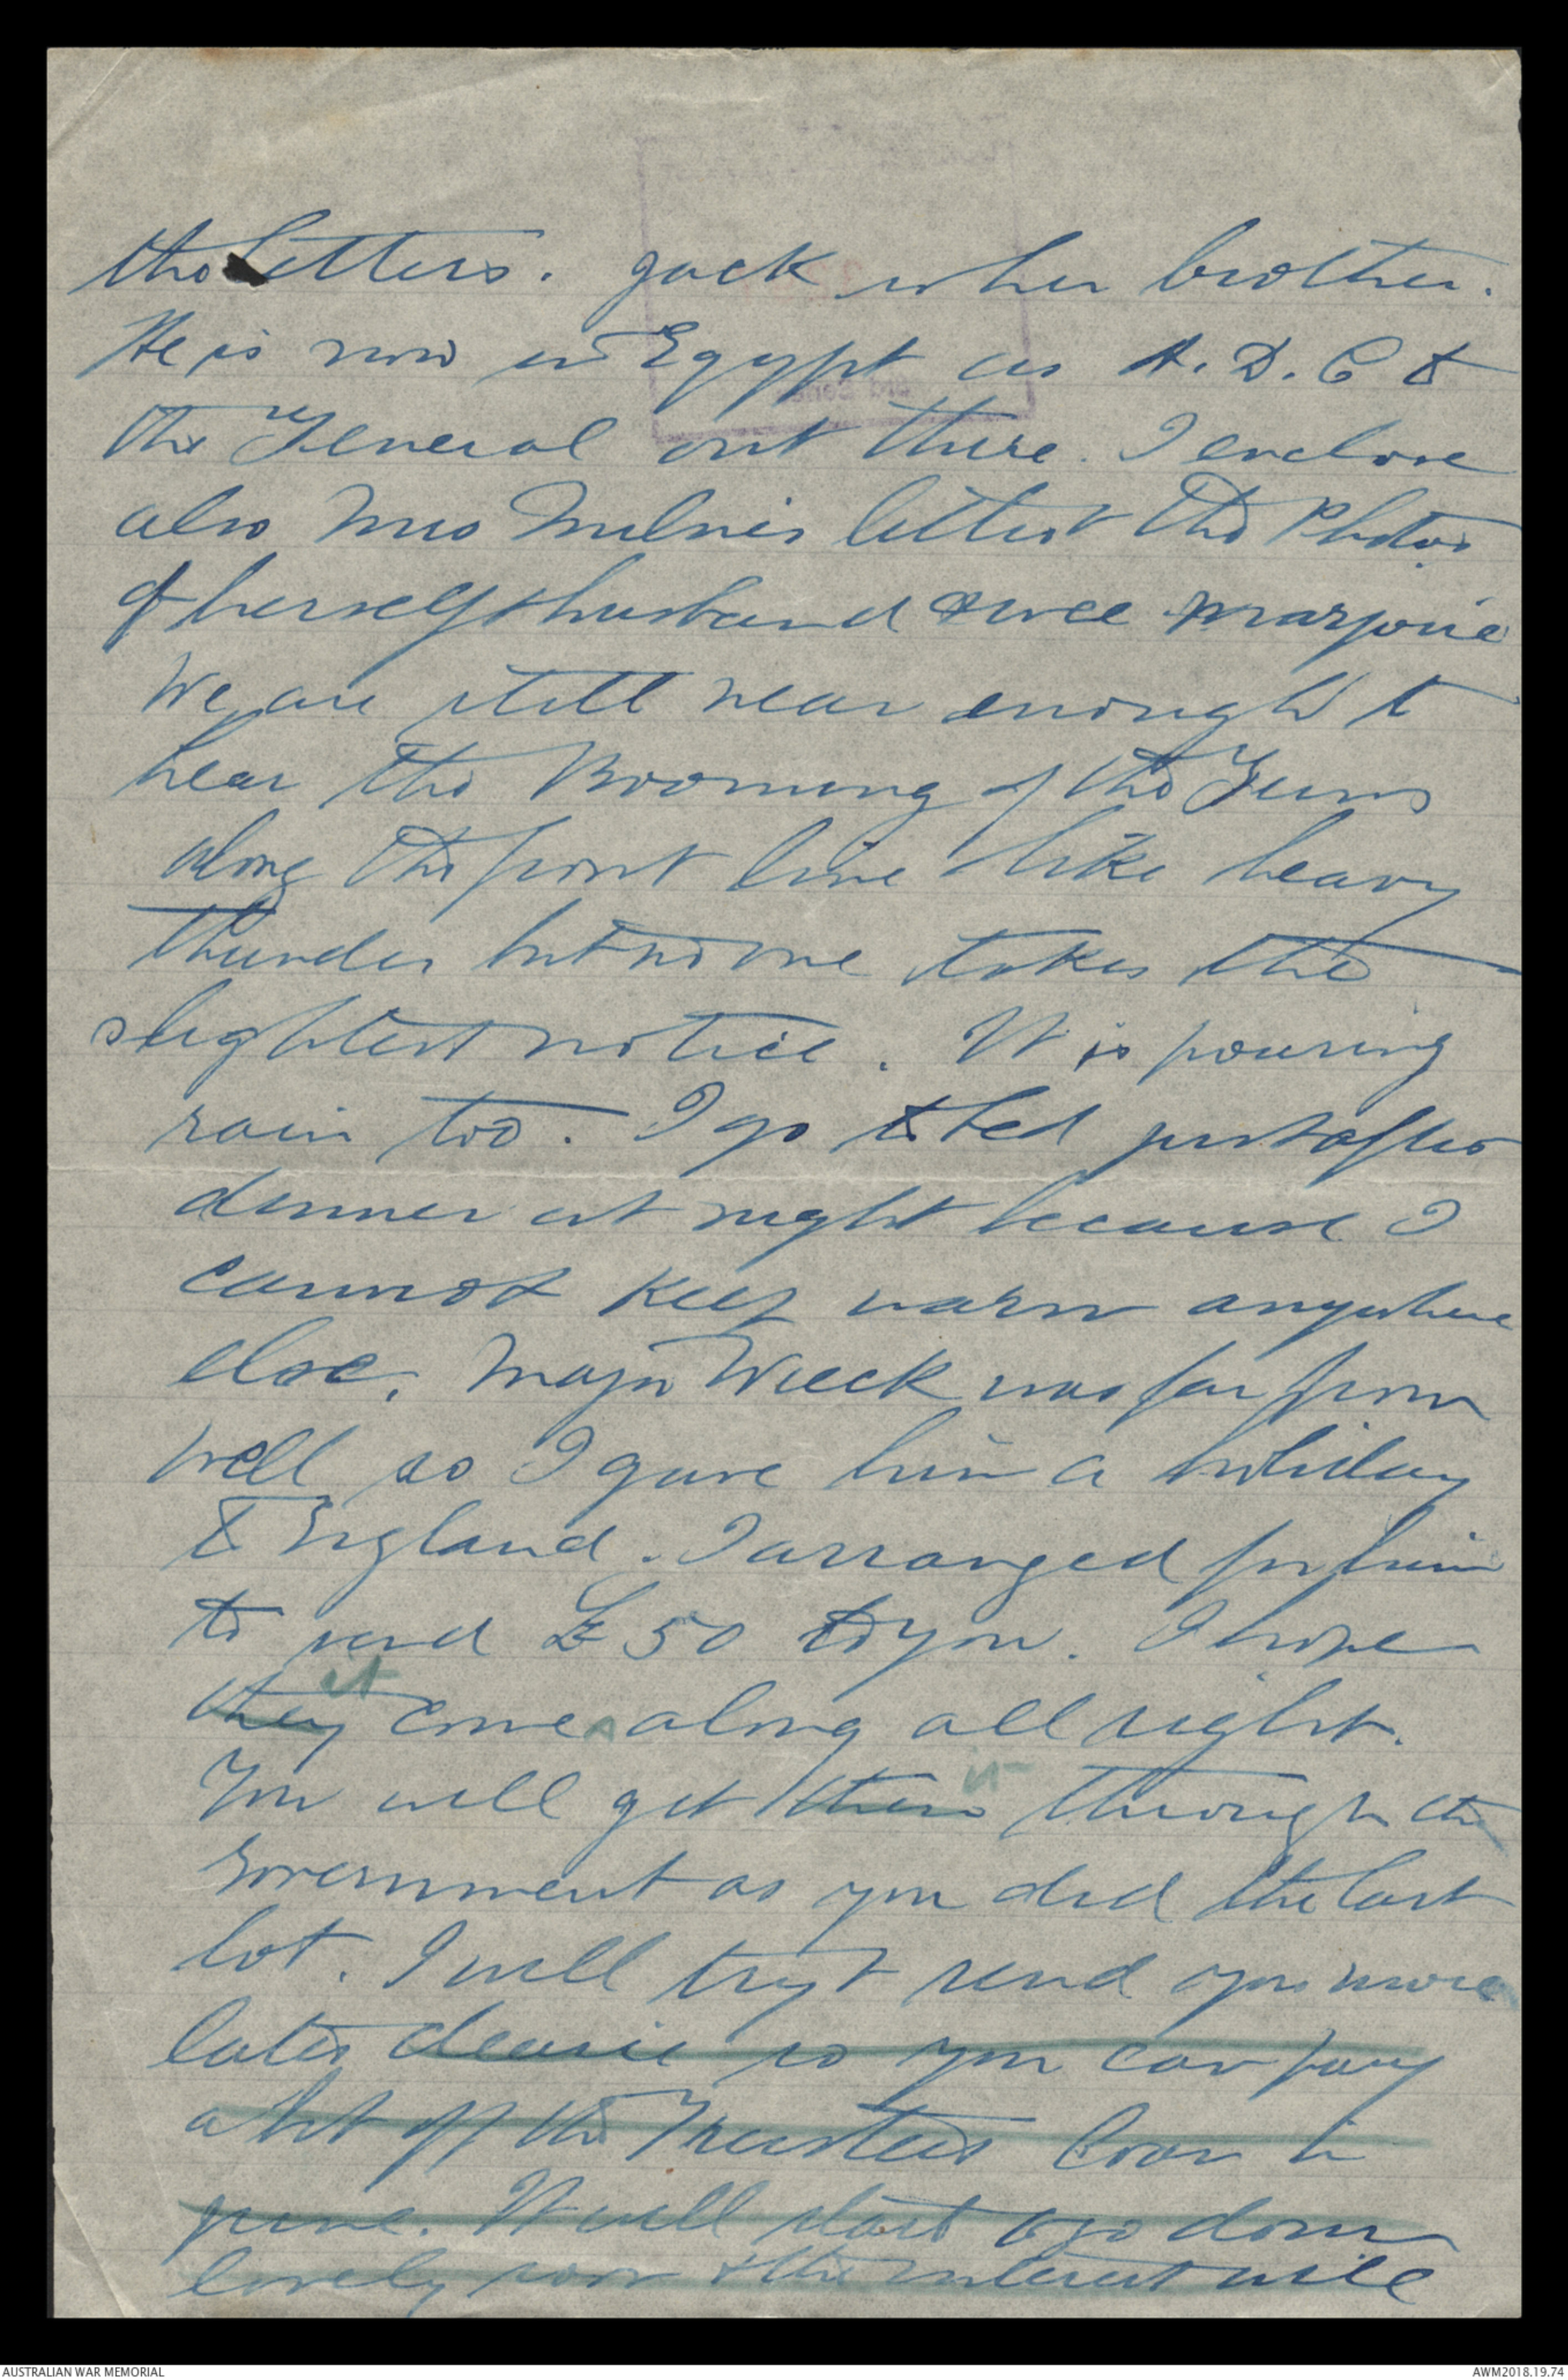 the letters. Jack is her brother.
He is now in Egypt as A.D.C to
the General out there. I enclose
also Mrs Milne's letter & the Photos
of herself & husband & wee Marjorie
We are still near enough to
hear the Booming of the Guns
along the front line like heavy
thunder but no one takes the
slightest notice. It is pouring
rain too. I go to bed just after
dinner at night because I
cannot keep warm anywhere
else. Major Wieck was far from
well so I gave him a holiday
to England. I arranged for him
to send £50 to you. I hope
they it come along all right.
You will get them it through the
Government as you did the last
lot. I will try & send you more
later dearie so you can pay
a bit off the Trustees loan in
June. It will start to go down
lovely soon & the interest will
AUSTRALIAN WAR MEMORIAL
AWM2018.19.74